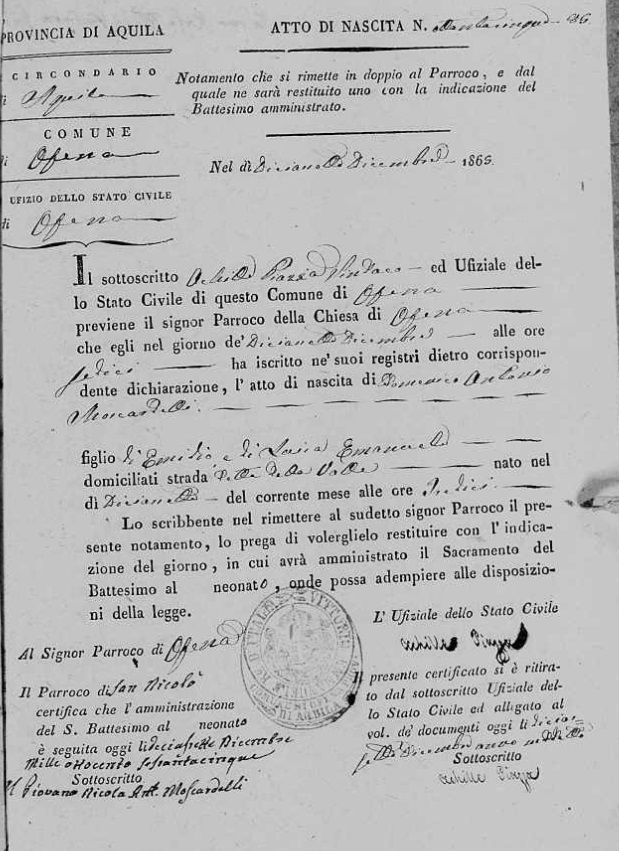 PROVINCIA DI AQUILA
CIRCONDARIO
di Aquila
COMUNE
di Ofena
UFIZIO DELLO STATO CIVILE
di Ofena
ATTO DI NASCITA N. 86
Notamento che si rimette in doppio al Parroco, e dal
quale ne sarà restituito uno con la indicazione del
Battesimo amministrato.
Nel dì Diciasette Dicembre 1865
Il sottoscritto Achille Piazza Sindaco ed Ufiziale del-
lo Stato Civile di questo Comune di Ofena
previene il signor Parroco della Chiesa di Ofena
che egli nel giorno de' Diciasette Dicembre alle ore
sedici ha iscritto ne' suoi registri dietro corrispon-
dente dichiarazione, l' atto di nascita di Domenico Antonio
Moscardelli
figlio di Emilio e di Luisa
domiciliati strada detta della Valle nato nel
dì Diciasette del corrente mese alle ore
Lo scribbente nel rimettere al sudetto signor Parroco il pre-
sente notamento, lo prega di volerglielo restituire con l' indica-
zione del giorno, in cui avrà amministrato il Sacramento del
Battesimo al neonato, onde possa adempiere alle disposizio-
ni della legge.
L' Ufiziale dello Stato Civile
Achille
Al Signor Parroco di Ofena
Il Parroco di San Nicolò
certifica che l' amministrazione
del S. Battesimo al neonato
è seguita oggi li deciasette Dicembre
Mille ottocento sessantacinque
Sottoscritto
Il Piovano Nicola Ant. Moscardelli
Il presente certificato si è ritira-
to dal sottoscritto Ufiziale del-
lo Stato Civile ed allegato al
vol. de' documenti oggi li dicias-
sette Dicembre anno
Sottoscritto
Achille